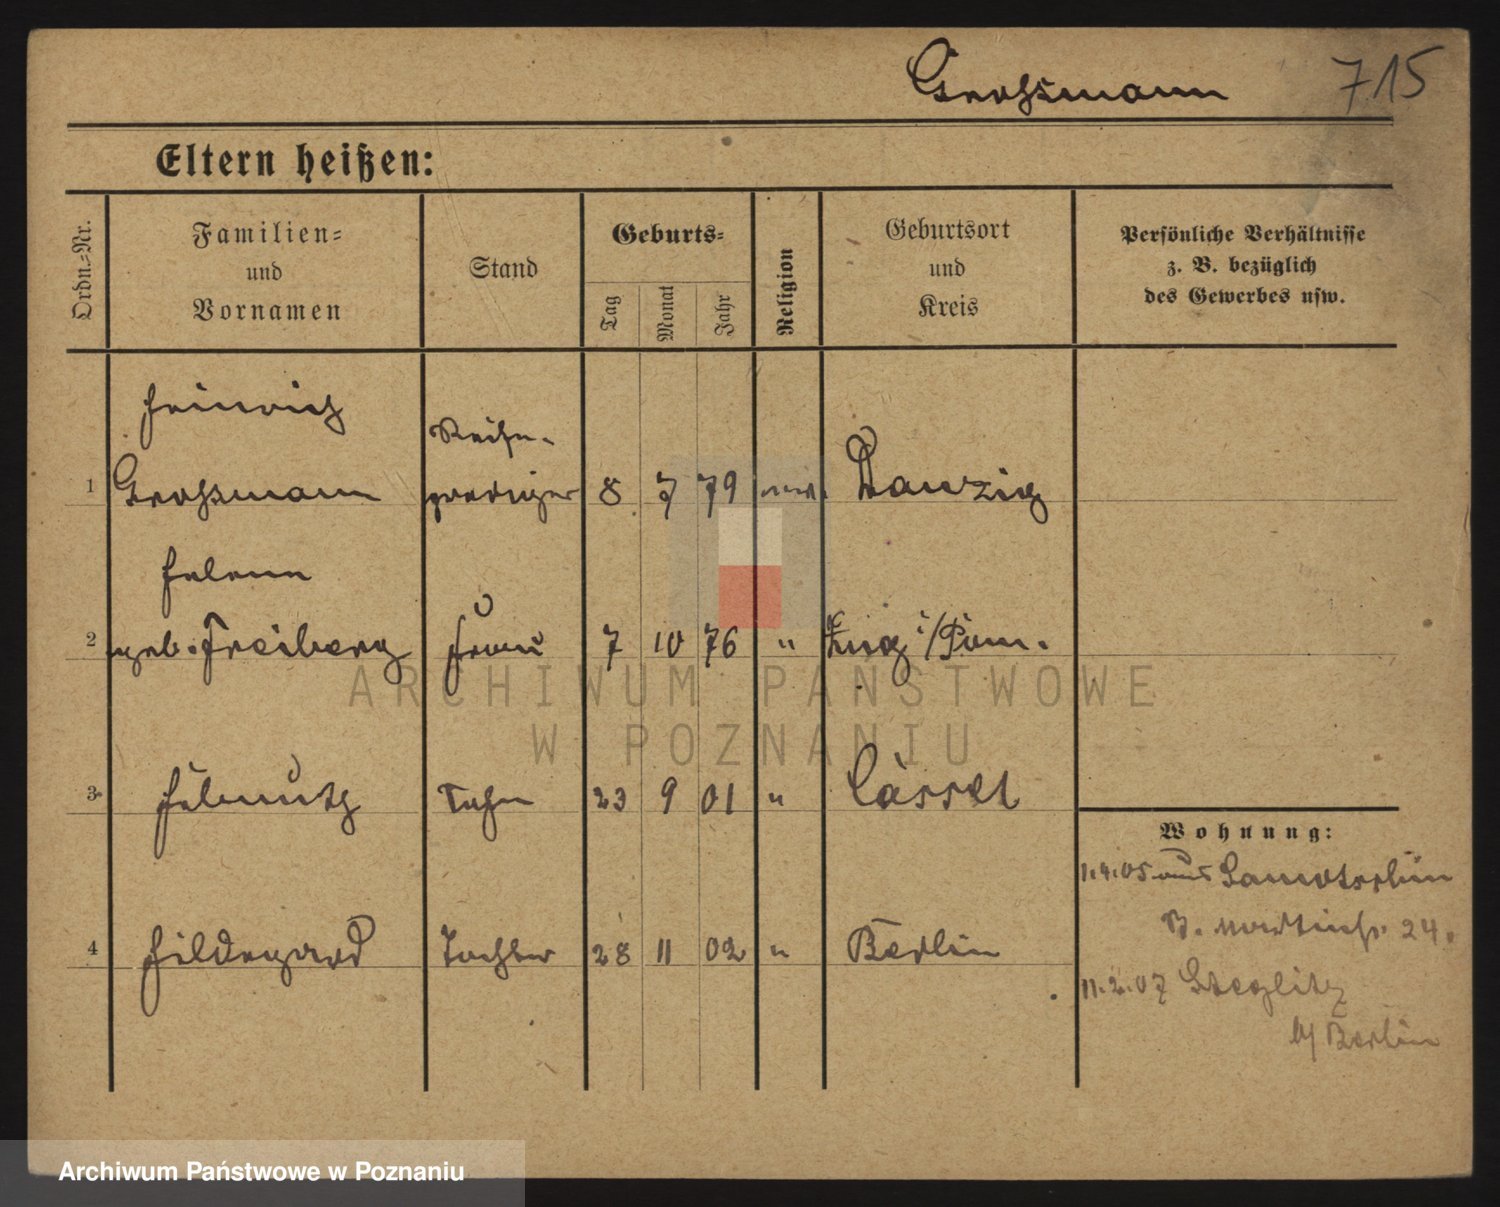 Grossmann 715
Eltern heißen:
Ordn.-Nr.
Familien-
und
Vornamen
Stand
Geburts-
Tag
Monat
Jahr
Religion
Geburtsort
und
Kreis
Persönliche Verhältnisse
z. B. bezüglich
des Gewerbes usw.
Heinrich
Reise-
1 Grossmann prediger 8 7 79 Danzig
Helene
2 geb. Freiberg Frau 7 10 76 " i/Pom.
3 Helmuth Sohn 23 9 01 " Cassel
4 Hildegard Tochter 28 11 02 " Berlin
Wohnung:
1.4.05 aus Samotschin
St. Martinstr. 24.
11.2.07 Steglitz
b/ Berlin
ARCHIWUM PAŃSTWOWE
W POZNANIU
Archiwum Państwowe w Poznaniu